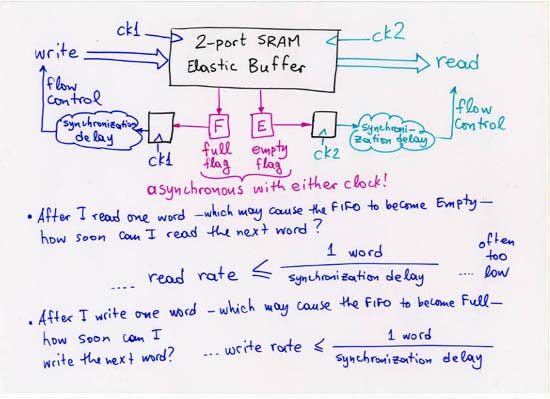 ck1
2-port SRAM
Elastic Buffer
ck2
write
read
flow
control
synchronization
delay
ck1
F
E
full
flag
empty
flag
ck2
synchroni-
zation delay
flow
control
asynchronous with either clock!
• After I read one word —which may cause the FIFO to become Empty—
how soon can I read the next word?
.... read rate ≤ 1 word
synchronization delay
.... often
too
low
• After I write one word —which may cause the FIFO to become Full—
how soon can I
write the next word? ... write rate ≤ 1 word
synchronization delay